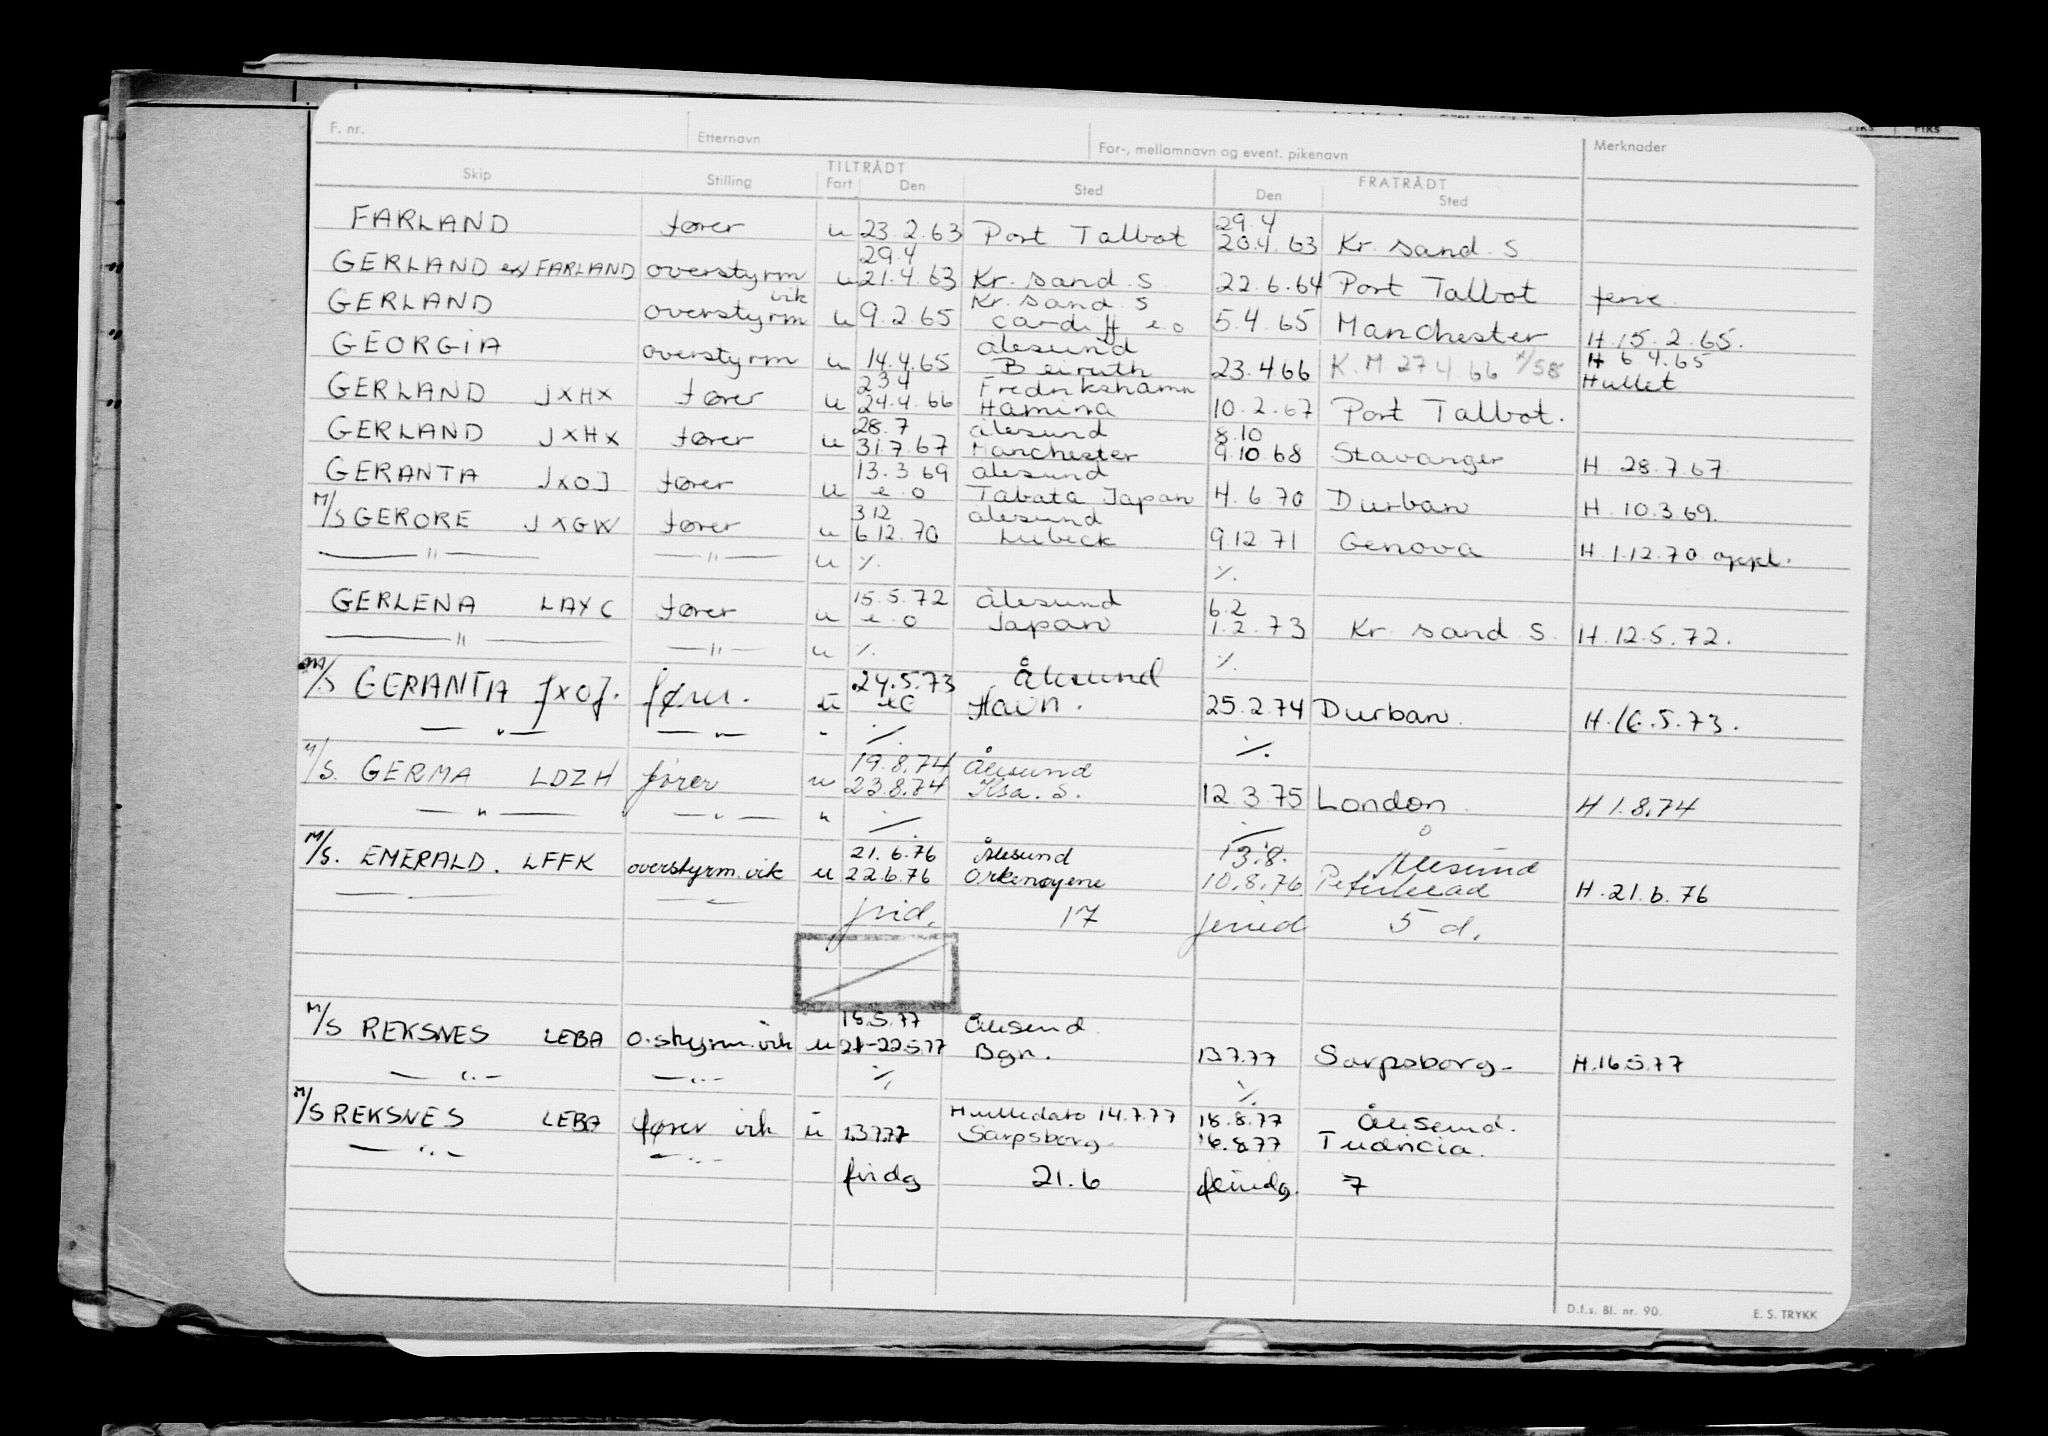 F. nr. Etternavn For-, mellomnavn og event. pikenavn Merknader
TILTRÅDT FRATRÅDT
Skip Stilling Fart Den Sted Den Sted
29.4
FARLAND fører u 23.2.63 Port Talbot 20.4.63 Kr. sand. S
29.4
GERLAND ex/ FARLAND overstyrm u 21.4.63 Kr. sand. S. 22.6.64 Port Talbot ferie.
vik Kr. sand. S
GERLAND overstyrm u 9.2.65 Cardiff e.o 5.4.65 Manchester H. 15.2.65.
Ålesund H 6.4.65
GEORGIA overstyrm u 14.4.65 Beiruth 23.4.66 K.M 27.4.66 Hullet
23.4 Fredrikshamn
GERLAND JXHX fører u 24.4.66 Hamina 10.2.67 Port Talbot.
28.7 Ålesund 8.10
GERLAND JXHX fører u 31.7.67 Manchester 9.10.68 Stavanger H. 28.7.67.
13.3.69 Ålesund
GERANTA JXOJ fører u e.o Tabata Japan 4.6.70 Durban H. 10.3.69.
3.12 Ålesund
M/S GERORE JXGW fører u 6.12.70 Lübeck 9.12.71 Genova H. 1.12.70 oppl.
— " — — " — u ٪. ٪.
15.5.72 Ålesund 6.2
GERLENA LAYC fører u e.o Japan 1.2.73 Kr. sand. S. H. 12.5.72.
— " — — " — u ٪. ٪.
24.5.73 Ålesund
M/S GERANTA JXOJ. fører. u eo 25.2.74 Durban. H. 16.5.73.
— " — — " — " ٪. ٪.
19.8.74 Ålesund
M/S. GERMA LDZH fører u 23.8.74 Ksa. S. 12.3.75 London. H 1.8.74
— " — — " — " ٪ ٪
21.6.76 Ålesund 13.8. Ålesund
M/S. EMERALD. LFFK overstyrm. vik u 22.6.76 Orkenøyene 10.8.76 Peterhead H. 21.6.76
frid. 17 feried 5 d.
18.5.77 Ålesund.
M/S REKSNES LEBA o.styrm. vik u 21-22.5.77 Bgn. 13.7.77 Sarpsborg- H. 16.5.77
— " — — " — ٪. ٪.
Hulledato 14.7.77 18.8.77 Ålesund.
M/S REKSNES LEBA fører vik u 13.7.77 Sarpsborg 16.8.77
— " — — " —
fridg 21.6 feriedg. 7
D.f.s. Bl. nr. 90. E. S. TRYKK